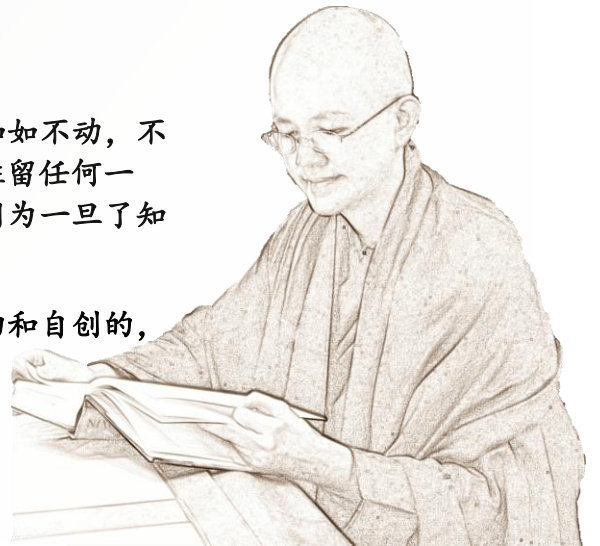 如不动，不
留任何一
为一旦了知
和自创的，